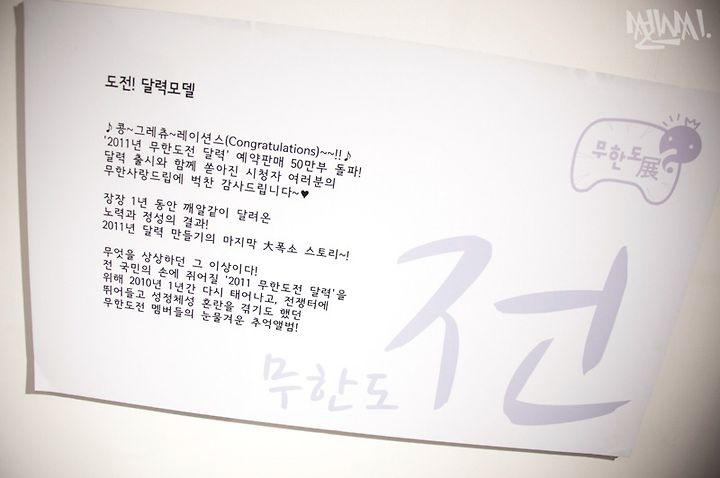 도전! 달력모델
♪콩~그레츄~레이션스(Congratulations)~~!!♪
'2011년 무한도전 달력' 예약판매 50만부 돌파!
달력 출시와 함께 쏟아진 시청자 여러분의
무한사랑드립에 벅찬 감사드립니다~♥
장장 1년 동안 깨알같이 달려온
노력과 정성의 결과!
2011년 달력 만들기의 마지막 大폭소 스토리~!
무엇을 상상하던 그 이상이다!
전 국민의 손에 쥐어질 '2011 무한도전 달력'을
위해 2010년 1년간 다시 태어나고, 전쟁터에
뛰어들고 성정체성 혼란을 겪기도 했던
무한도전 멤버들의 눈물겨운 추억앨범!
무한도展
무한도전